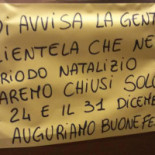 DI AVVISA LA GENT
CLIENTELA CHE NE
RIODO NATALIZIO
AREMO CHIUSI SOLO
24 E IL 31 DICEM
AUGURIAMO BUONE FE